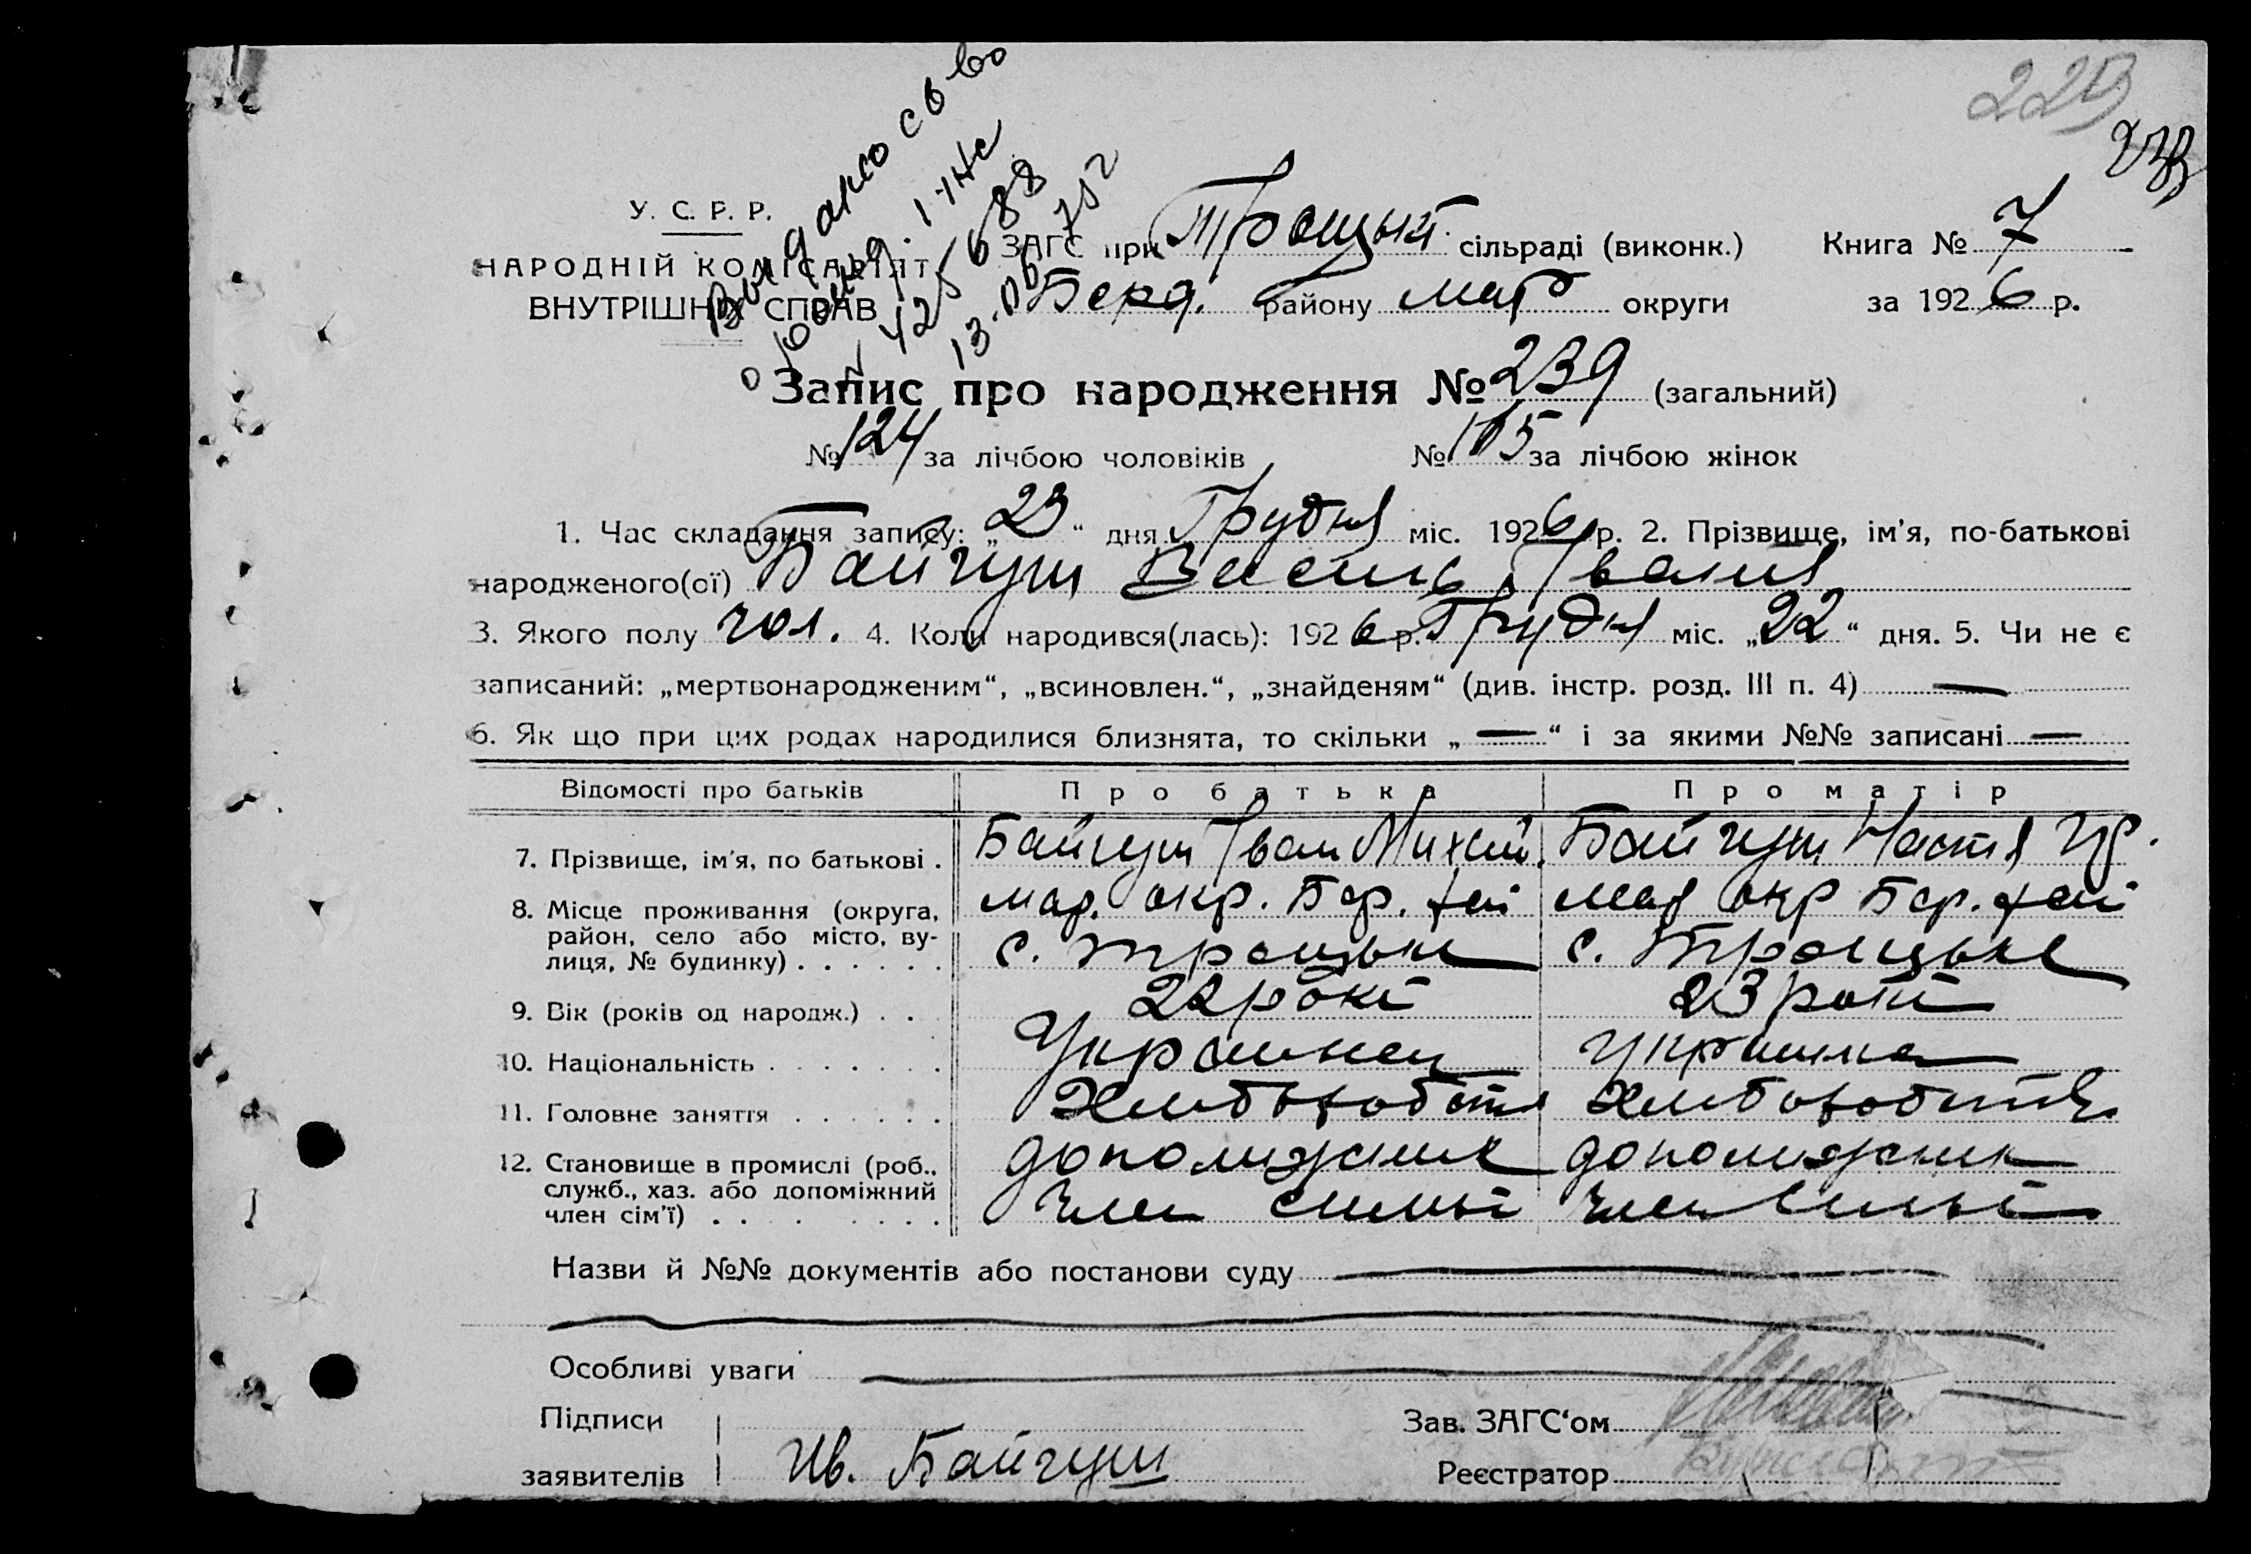 229
У. С. Р. Р.
НАРОДНІЙ КОМІСАРІЯТ
ВНУТРІШНІХ СПРАВ
ЗАГС при Троцьк. сільраді (виконк.) Книга № 7
Берд. району мар округи за 1926 р.
Запис про народження № 239 (загальний)
№ 124 за лічбою чоловіків № 115 за лічбою жінок
1. Час складання запису: „23“ дня Грудня міс. 1926 р. 2. Прізвище, ім'я, по-батькові
народженого(ої) Байгуш Василь Іванів
3. Якого полу чол. 4. Коли народився(лась): 1926 р. Грудня міс. „22“ дня. 5. Чи не є
записаний: „мертвонародженим“, „всиновлен.“, „знайденям“ (див. інстр. розд. III п. 4) —
6. Як що при цих родах народилися близнята, то скільки „—“ і за якими №№ записані —
Відомості про батьків Про батька Про матір
7. Прізвище, ім'я, по батькові . Байгуш Іван Михай. Байгуш Настя Гр.
8. Місце проживання (округа, мар. окр. Бер. мар окр Бер.
район, село або місто, ву-
лиця, № будинку) . . . . . . с. Троцьке с. Троцьке
9. Вік (років од народж.) . . 22 рокі 23 рокі
10. Національність . . . . . . . Українец Українка
11. Головне заняття . . . . . . Хліборобств Хліборобств
12. Становище в промислі (роб., допоміжний допоміжник
служб., хаз. або допоміжний
член сім'ї) . . . . . . . . член симьі член симьі
Назви й №№ документів або постанови суду
Особливі уваги
Підписи Зав. ЗАГС‘ом
заявителів Ив. Байгуш Реєстратор